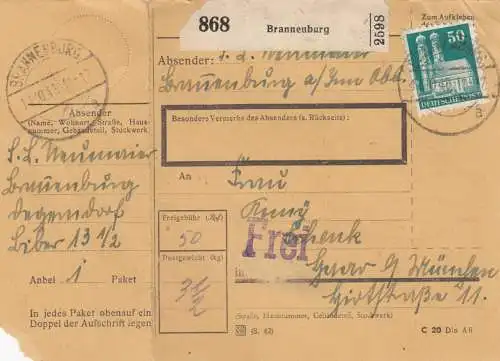 868
Brannenburg
2598
Zum Aufkleben
50
DEUTSCHE POST
BRANNENBURG
Absender
(Name, Wohnort, Straße, Haus-
nummer, Gebäudeteil, Stockwerk)
S. L. Neumaier
Brannenburg
Degerndorf
Biber 13 1/2
Anbei 1 Paket
In jedes Paket obenauf ein
Doppel der Aufschrift legen
Absender: S. L. Neumaier
Brannenburg a/Inn Obb.
Besondere Vermerke des Absenders (s. Rückseite):
An Frau
Schenk
in Haar b München
11.
Freigebühr (Rpf)
50
Postgewicht (kg)
3 1/2
Frei
(Straße, Hausnummer, Gebäudeteil, Stockwerk)
(8. 42)
C 20 Din A6